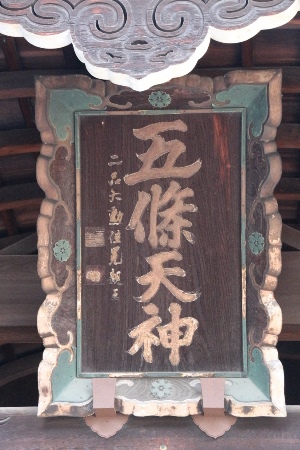 五條天神
二品大勲位晃親王